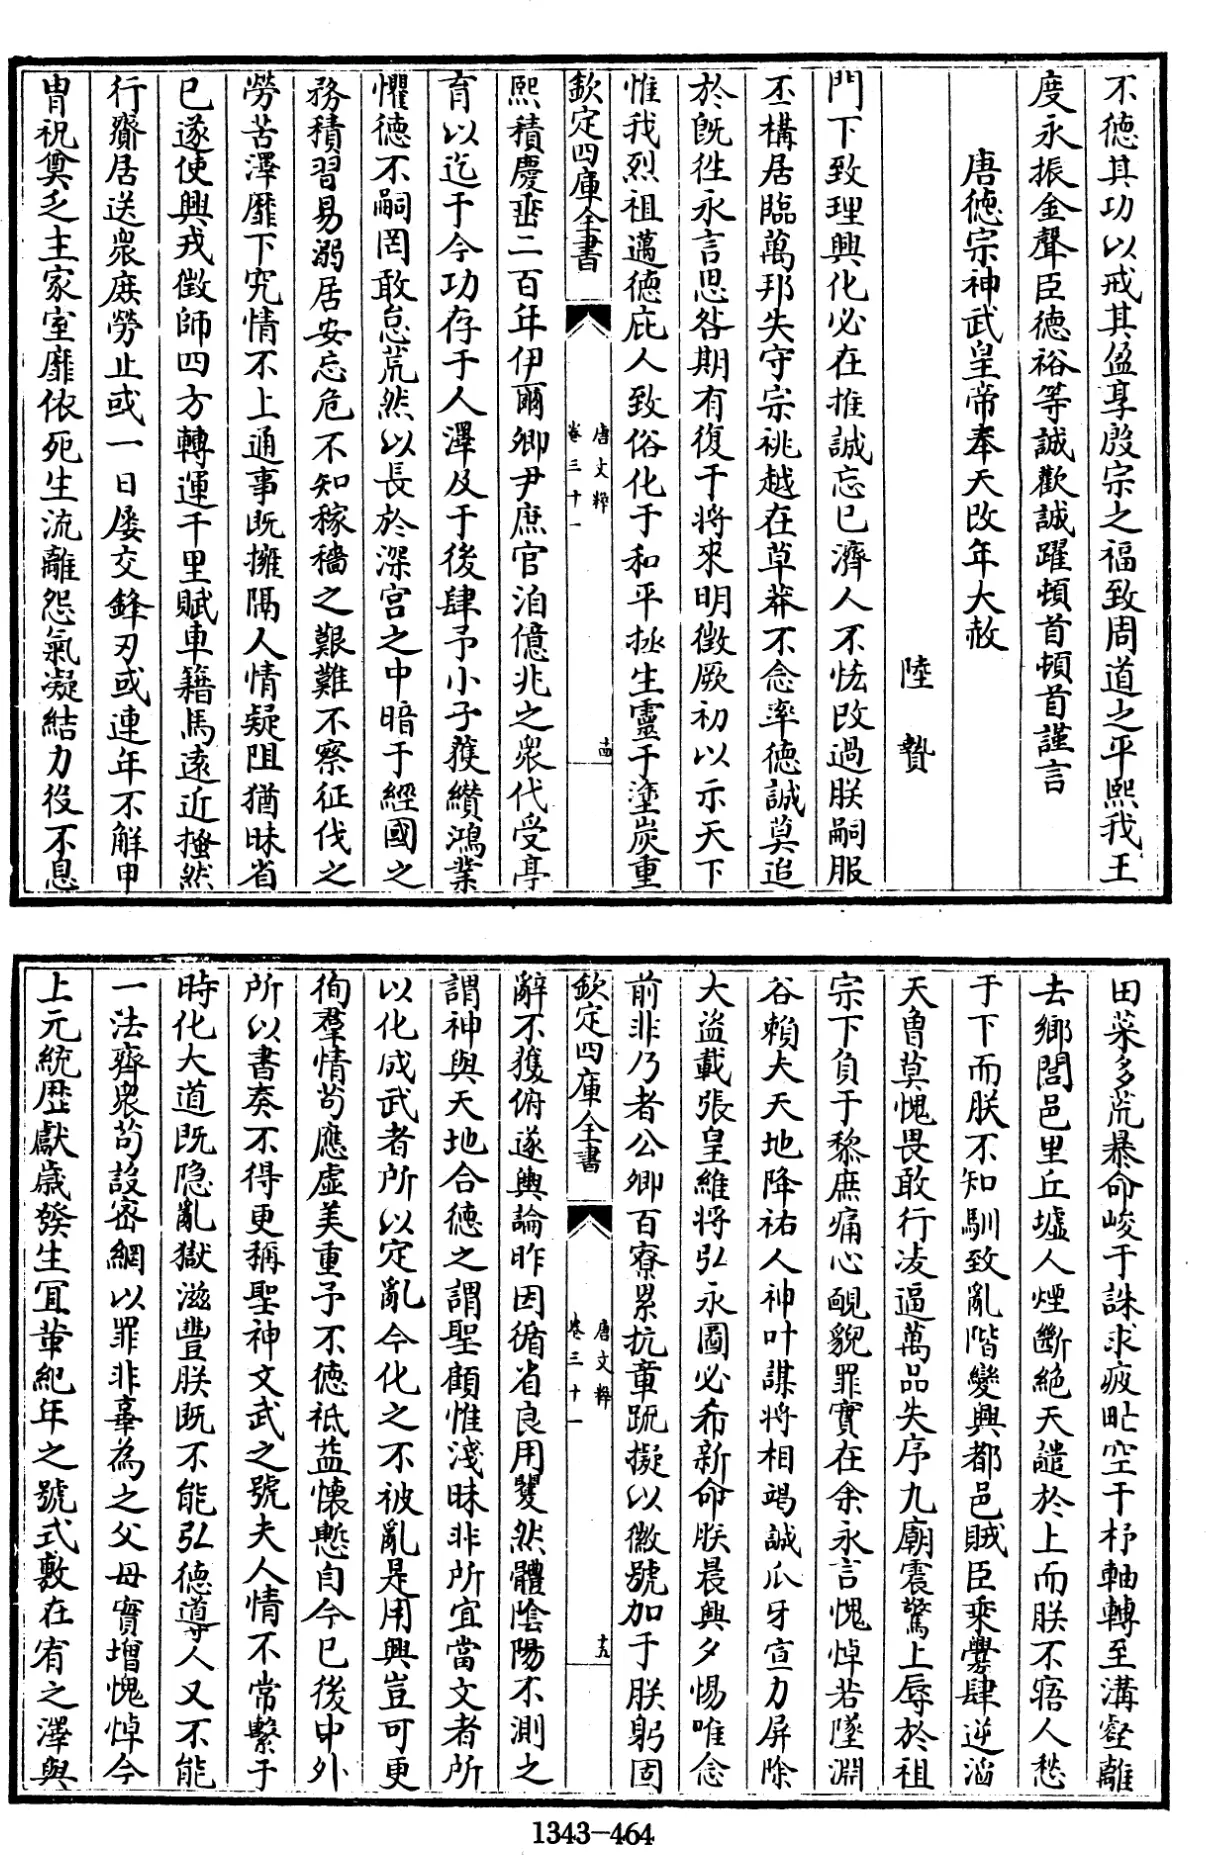 不德其功以戒其盈享殷宗之福致周道之平熙我王
度永振金聲臣德裕等誠歡誠躍頓首頓首謹言
唐德宗神武皇帝奉天改年大赦
陸贄
門下致理興化必在推誠忘已濟人不恡改過朕嗣服
丕構居臨萬邦失守宗祧越在草莽不念率德誠莫追
於既徃永言思咎期有復于將來明徵厥初以示天下
惟我烈祖邁德庇人致俗化于和平拯生靈于塗炭重
欽定四庫全書
唐文粹
卷三十一
熙積慶垂二百年伊爾卿尹庶官洎億兆之衆代受亭
育以迄于今功存于人澤及于後肆予小子獲纘鴻業
懼德不嗣罔敢怠荒然以長於深宫之中暗于經國之
務積習易溺居安忘危不知稼穡之艱難不察征伐之
勞苦澤靡下究情不上通事既擁隔人情疑阻猶昧省
已遂使興戎徵師四方轉運千里賦車籍馬逺近掻然
行齎居送衆庶勞止或一日屢交鋒刃或連年不解甲
胄祝奠乏主家室靡依死生流離怨氣凝結力役不息
田菜多荒暴命峻于誅求疲甿空于杼軸轉至溝壑離
去鄉閭邑里丘墟人煙斷絶天譴於上而朕不寤人愁
于下而朕不知馴致亂階變興都邑賊臣乘釁肆逆滔
天曾莫愧畏敢行凌逼萬品失序九廟震驚上辱於祖
宗下負于黎庶痛心靦貌罪實在余永言愧悼若墜淵
谷賴夫天地降祐人神叶謀將相竭誠爪牙宣力屏除
大盗載張皇維將弘永圖必希新命朕晨興夕惕唯念
前非乃者公卿百寮累抗章疏擬以徽號加于朕躬固
欽定四庫全書
唐文粹
卷三十一
十九
辭不獲俯遂輿論昨因循省良用矍然體陰陽不測之
謂神與天地合德之謂聖顧惟淺昧非所宜當文者所
以化成武者所以定亂今化之不被亂是用興豈可更
徇羣情苟應虚美重予不德祗益懷慙自今已後中外
所以書奏不得更稱聖神文武之號夫人情不常繫于
時化大道既隐亂獄滋豐朕既不能弘德導人又不能
一法齊衆苟設密網以罪非辜為之父母實増愧悼今
上元統歴獻歲發生宜革紀年之號式敷在宥之澤與
1343-464